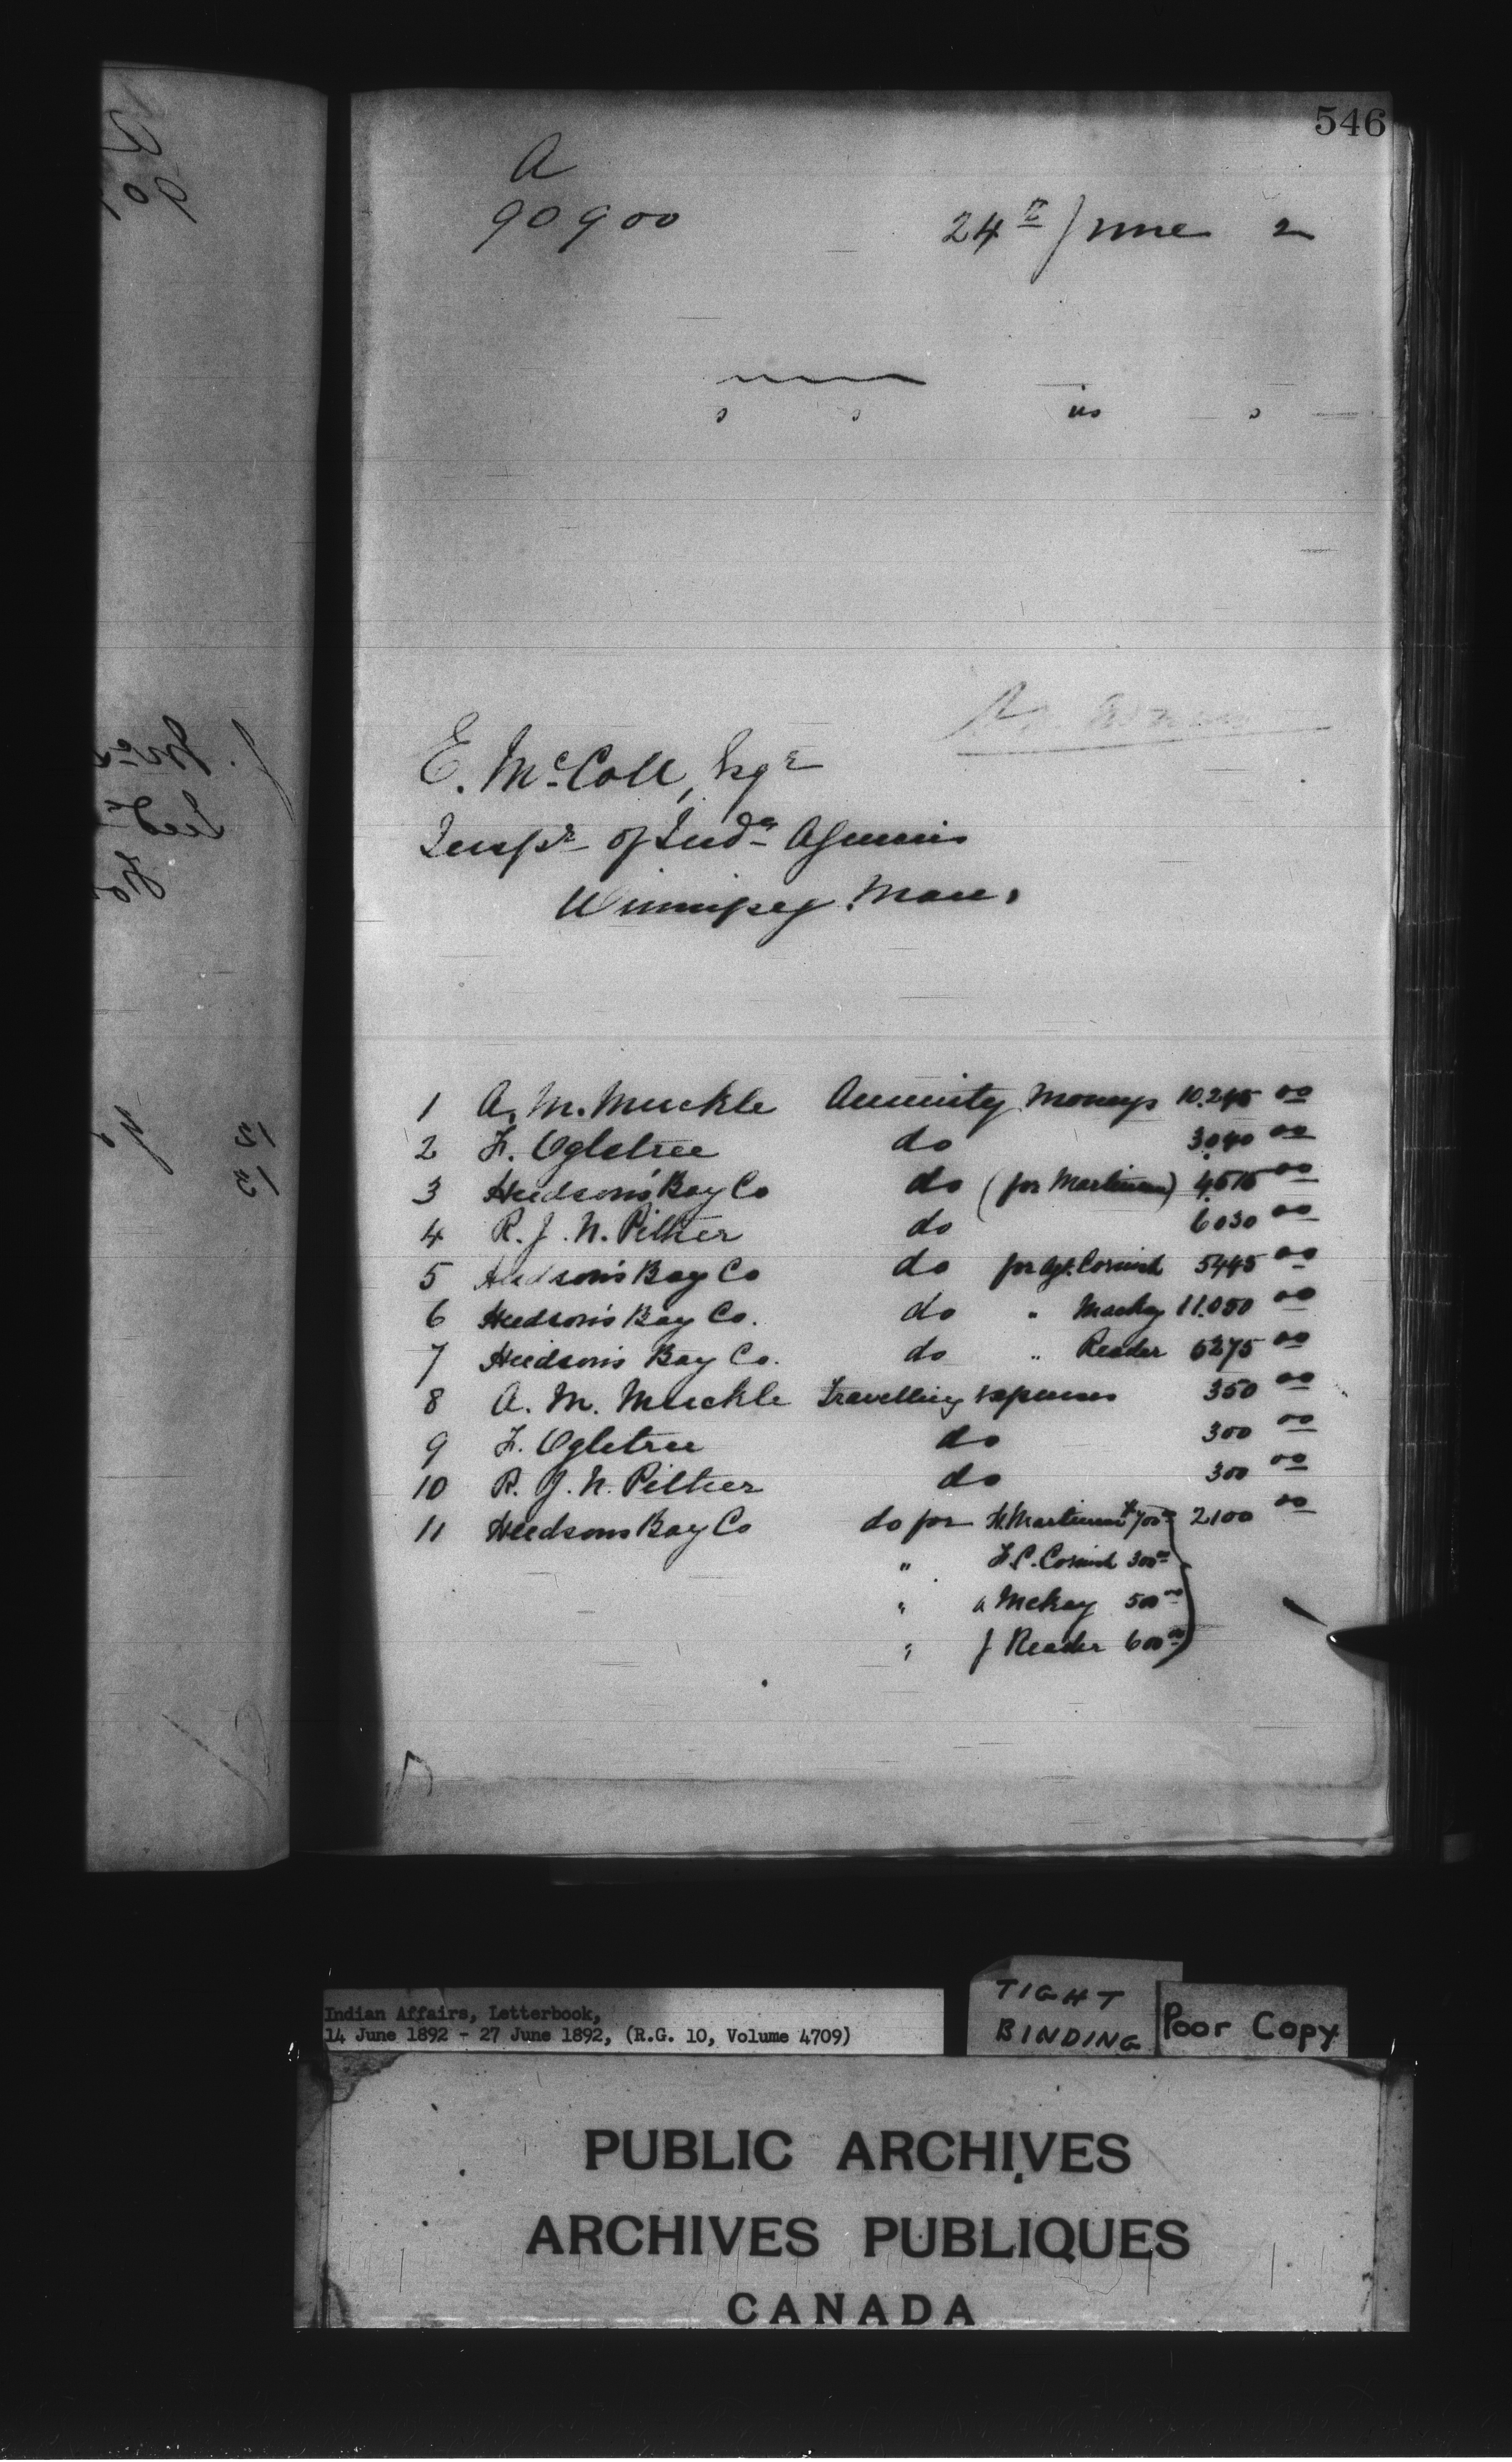 546
A
90900 24th June 2
E. McColl, Esqr
Inspr of Indn Agencies
Winnipeg. Man.
1 A. M. Muckle Annuity Moneys 10.245 00
2 F. Ogletree do 3040 00
3 Hudson's Bay Co do (for Martineau) 4515 00
4 R. J. N. Pither do 6030 00
5 Hudson's Bay Co do for Agt. Cornish 5445 00
6 Hudson's Bay Co. do " Mackay 11.050 00
7 Hudson's Bay Co. do " Reader 6275 00
8 A. M. Muckle Travelling expenses 350 00
9 F. Ogletree do 300 00
10 R. J. N. Pither do 300 00
11 Hudsons Bay Co do for H. Martineau $700 00 2100 00
" F. C. Cornish 300 00
" A McKay 500 00
" J Reader 600 00
Indian Affairs, Letterbook,
14 June 1892 - 27 June 1892, (R.G. 10, Volume 4709)
TIGHT
BINDING
Poor Copy
PUBLIC ARCHIVES
ARCHIVES PUBLIQUES
CANADA